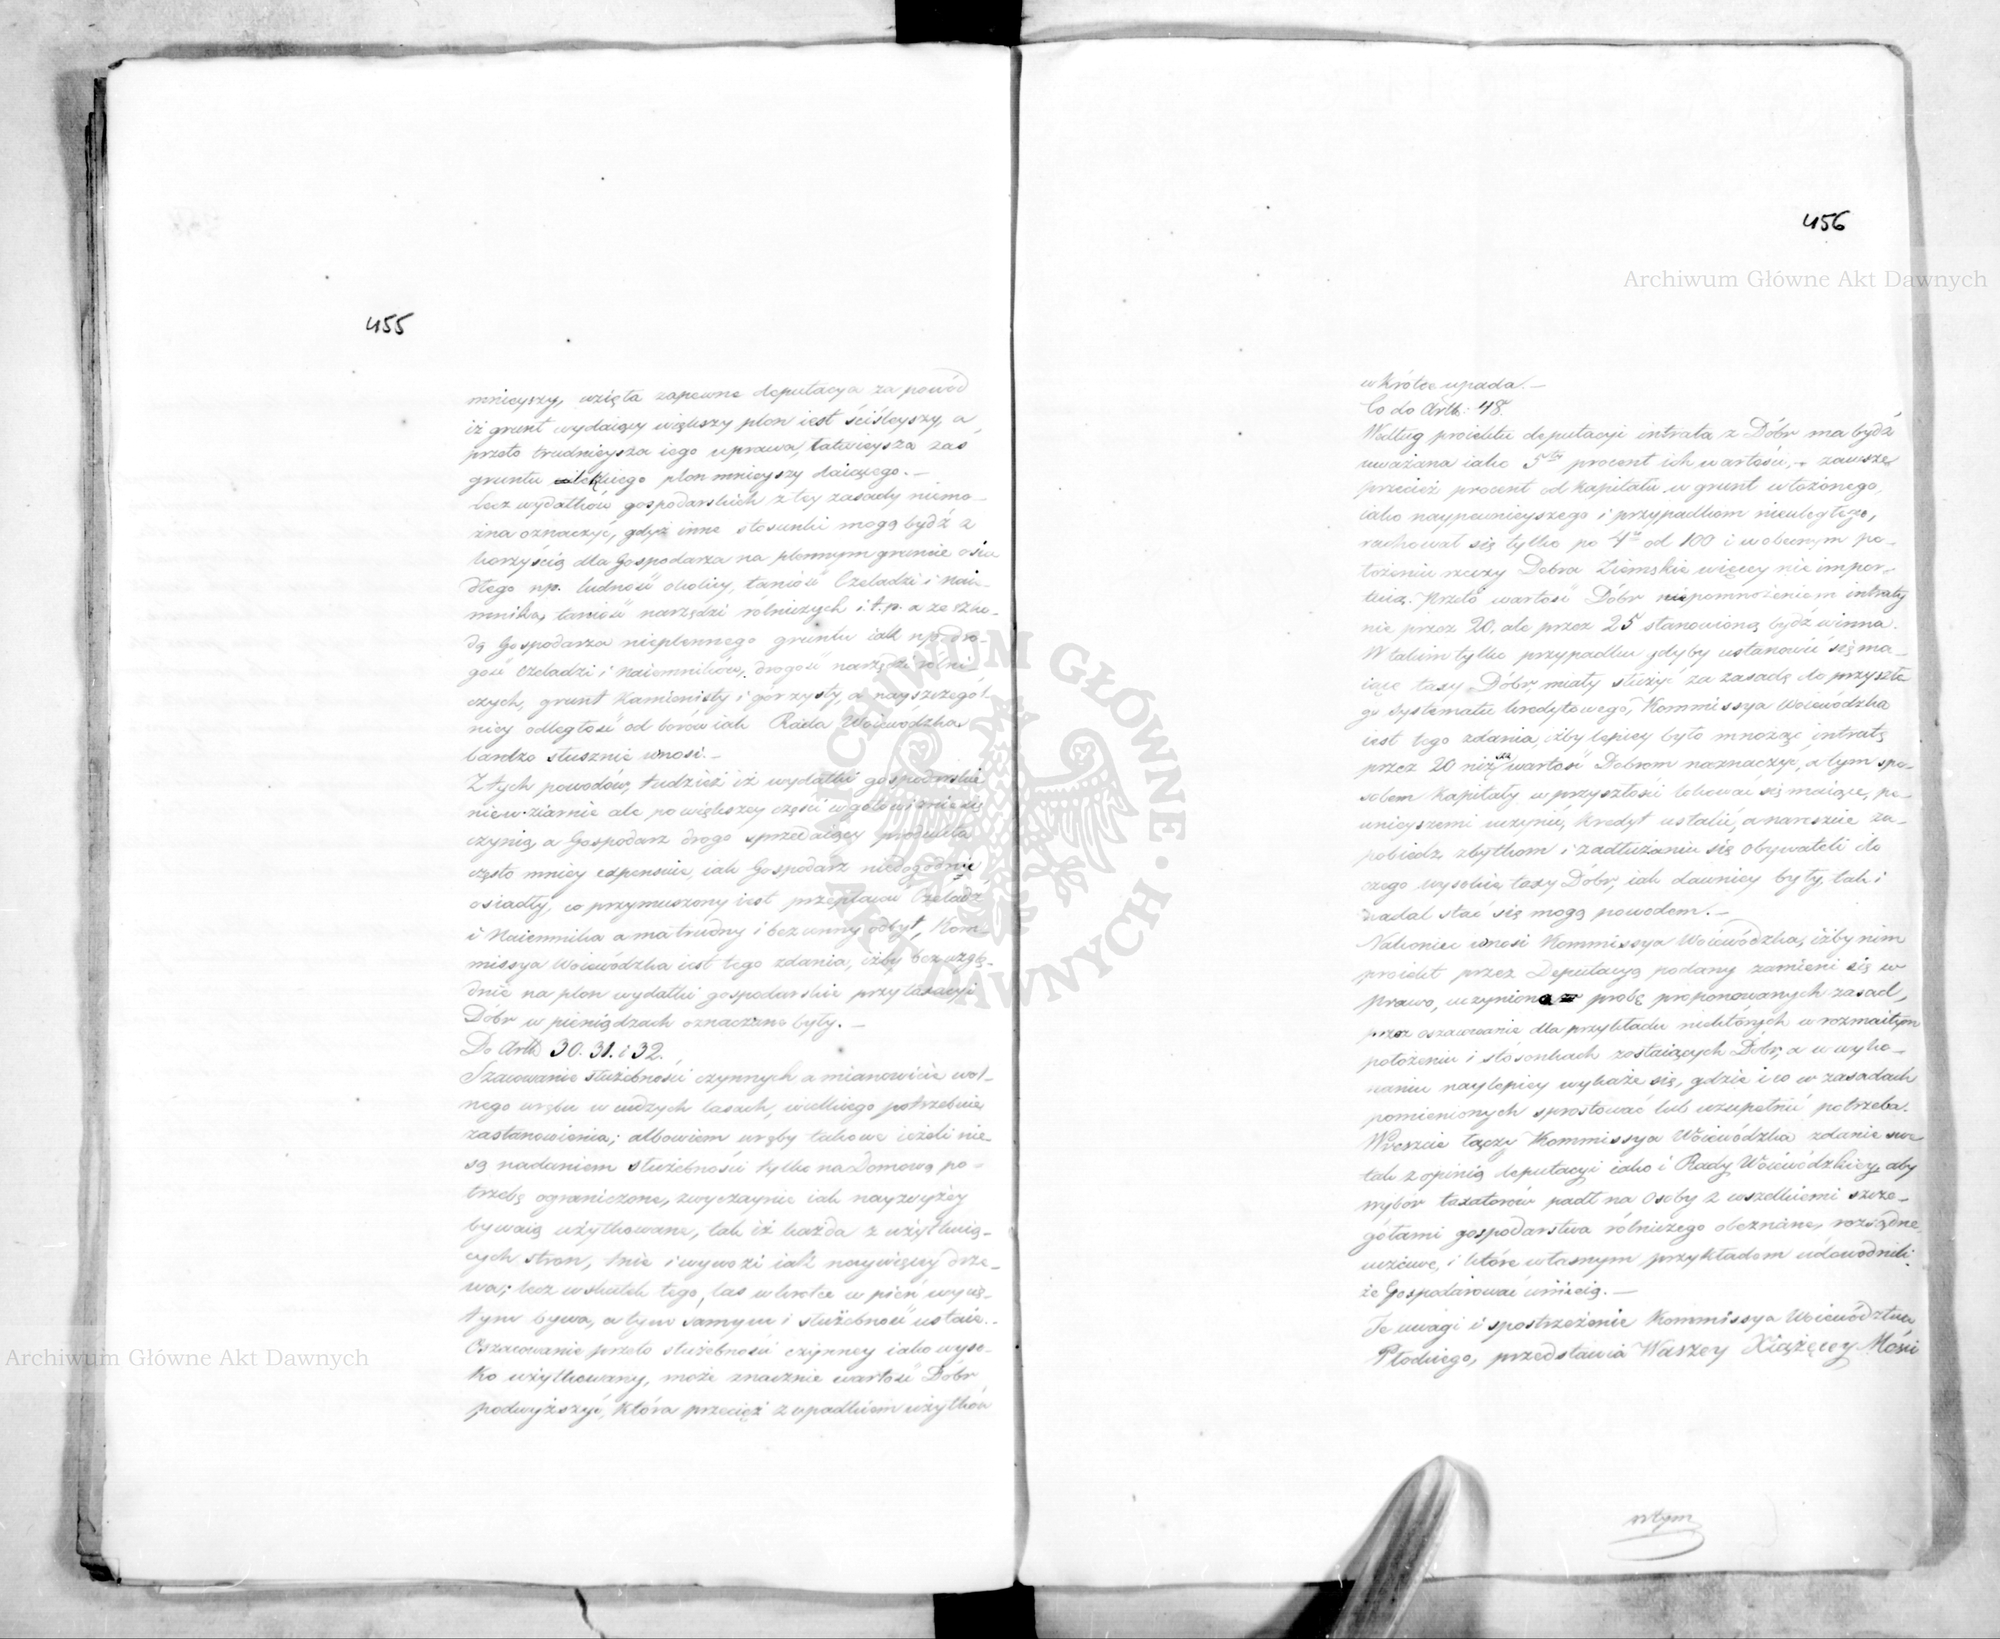 455
mnieyszy, wzięta zapewne deputacya za powód
iż grunt wydaiący większy plon iest ściśleyszy, a
przeto trudnieysza iego uprawa, łatwieysza zaś
gruntu lekkiego plon mnieyszy daiącego. —
Lecz wydatków gospodarskich z tey zasady niemo-
żna oznaczyć, gdyż inne stosunki mogą bydź z
korzyścią dla Gospodarza na plennym gruncie osia
dłego np. ludność okolicy, taniość Czeladzi i naie-
mnika, taniość narzędzi rólniczych i.t.p. a ze szko-
dą Gospodarza nieplennego gruntu iak np. dro-
gość Czeladzi i Naiemników, drogość narzędzi rólni-
czych, grunt Kamienisty i górzysty, a nayszczegól
niey odległość od borów iak Rada Woiewódzka
bardzo słusznie wnosi. —
Z tych powodów, tudzież iż wydatki gospodarskie
nie w ziarnie ale po większey części w gotowiznie się
czynią, a Gospodarz drogo sprzedaiący produkta
często mniey expensuie, iak Gospodarz niedogodnie
osiadły, co przymuszony iest przepłacać Czeladź
i Naiemnika a ma trudny i bezcenny odbyt, Kom-
missya Woiewódzka iest tego zdania, iżby bez wzglę-
dnie na plon wydatki gospodarskie przy taxacyi
Dóbr w pieniądzach oznaczone były. —
Do Artk. 30. 31. i 32.
Szacowanie służebności czynnych a mianowicie wol-
nego wrębu w cudzych lasach, wielkiego potrzebuie
zastanowienia; albowiem wręby takowe ieżeli nie-
są nadaniem służebności tylko na Domową po-
trzebę ograniczone, zwyczaynie iak nayzwyżey
bywaią użytkowane, tak iż każda z użytkuią-
cych stron, tnie i wywozi iak naywięcey drze-
wa; lecz w skutek tego, las wkrótce w pień wycię-
tym bywa, a tym samym i służebność ustaie. -
Oszacowanie przeto służebności czynney iako wyso-
ko użytkowany, może znacznie wartość Dóbr
podwyższyć, która przecież z upadkiem użytków
456
wkrótce upada. —
Co do Artk: 48.
Według proiektu deputacyi intrata z Dóbr ma bydź
uważana iako 5ty procent ich wartości, - zawsze
przecież procent od kapitału w grunt włożonego,
iako naypewnieyszego i przypadkom nieuległego,
rachował się tylko po 4ry od 100 i w obecnym po-
łożeniu rzeczy Dobra Ziemskie więcey nie impor-
tuią. Przeto wartość Dóbr pomnożeniem intraty
nie przez 20. ale przez 25 stanowioną bydź winna.
W takim tylko przypadku gdyby ustanowić się ma-
iące taxy Dóbr, miały służyć za zasadę do przyszłe
go systematu kredytowego, Kommissya Woiewódzka
iest tego zdania, iżby lepiey było mnożąc intratę
przez 20 niższą wartość Dobrom naznaczyć, a tym spo-
sobem Kapitały w przyszłości lokować się maiące, pe-
wnieyszemi uczynić, Kredyt ustalić, a nareszcie za-
pobiedz zbytkom i zadłużaniu się Obywateli do
czego wysokie taxy Dóbr, iak dawniey były, tak i
nadal stać się mogą powodem. —
Nakoniec wnosi Kommissya Woiewódzka, iżby nim
proiekt przez Deputacyą podany zamieni się w
prawo, uczyniono probę proponowanych zasad,
przez oszacowanie dla przykładu niektórych w rozmaitym
położeniu i stósonkach zostaiących Dóbr, a w wyko-
naniu naylepiey wykaże się, gdzie i co w zasadach
pomienionych sprostować lub uzupełnić potrzeba.
Wreszcie łączy Kommissya Woiewódzka zdanie swe
tak z opinią deputacyi iako i Rady Woiewódzkiey, aby
wybór taxatorów padł na Osoby z wszelkiemi szcze-
gółami gospodarstwa rólniczego obeznane, rozsądne
uczciwe, i które własnym przykładem udowodnili
że Gospodarować umieią. —
Te uwagi i spostrzeżenie Kommissya Woiewództwa
Płockiego, przedstawia Waszey Xiążęcey Mości
w tym
Archiwum Główne Akt Dawnych
Archiwum Główne Akt Dawnych
ARCHIWUM GŁÓWNE · AKT DAWNYCH ·